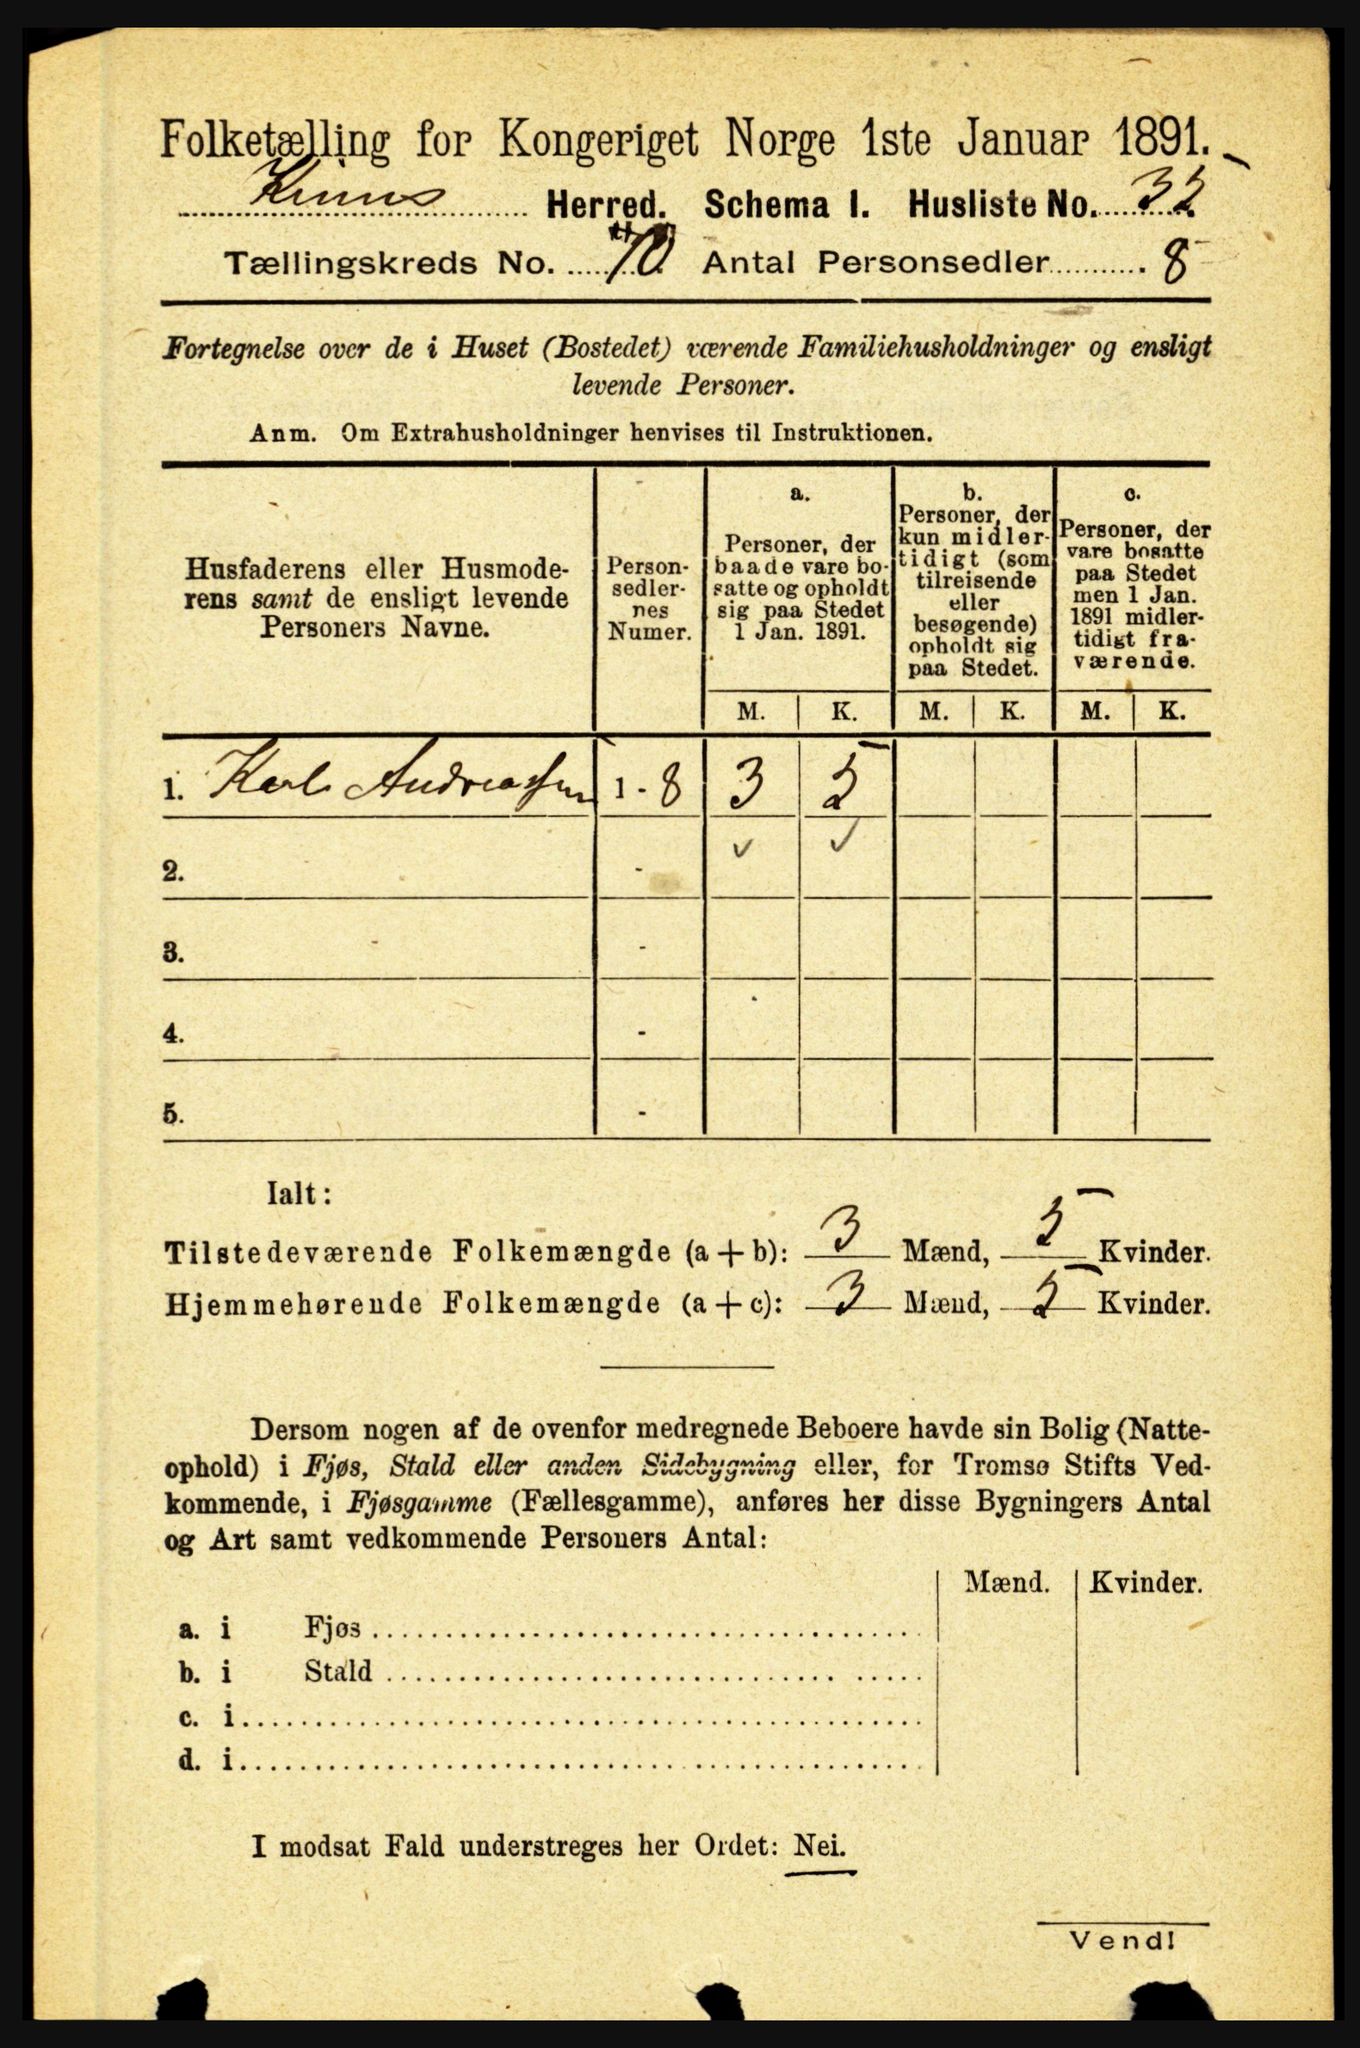 Folketælling for Kongeriget Norge 1ste Januar 1891.
Kinns Herred. Schema I. Husliste No. 35
Tællingskreds No. 10 Antal Personsedler 8
Fortegnelse over de i Huset (Bostedet) værende Familiehusholdninger og ensligt
levende Personer.
Anm. Om Extrahusholdninger henvises til Instruktionen.
Husfaderens eller Husmode-
rens samt de ensligt levende
Personers Navne.
Person-
sedler-
nes
Numer.
a.
Personer, der
baade vare bo-
satte og opholdt
sig paa Stedet
1 Jan. 1891.
b.
Personer, der
kun midler-
tidigt (som
tilreisende
eller
besøgende)
opholdt sig
paa Stedet.
c.
Personer, der
vare bosatte
paa Stedet
men 1 Jan.
1891 midler-
tidigt fra-
værende.
M. K. M. K. M. K.
1. Karl Andreassen 1 - 8 3 5
2. -
3. -
4. -
5. -
Ialt:
Tilstedeværende Folkemængde (a + b): 3 Mænd, 5 Kvinder.
Hjemmehørende Folkemængde (a + c): 3 Mænd, 5 Kvinder.
Dersom nogen af de ovenfor medregnede Beboere havde sin Bolig (Natte-
ophold) i Fjøs, Stald eller anden Sidebygning eller, for Tromsø Stifts Ved-
kommende, i Fjøsgamme (Fællesgamme), anføres her disse Bygningers Antal
og Art samt vedkommende Personers Antal:
Mænd. Kvinder.
a. i Fjøs
b. i Stald
c. i
d. i
I modsat Fald understreges her Ordet: Nei.
Vend!